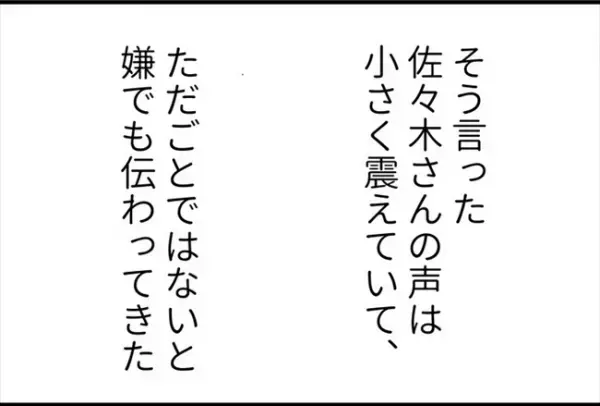 そう言った
佐々木さんの声は
小さく震えていて、
ただごとではないと
嫌でも伝わってきた